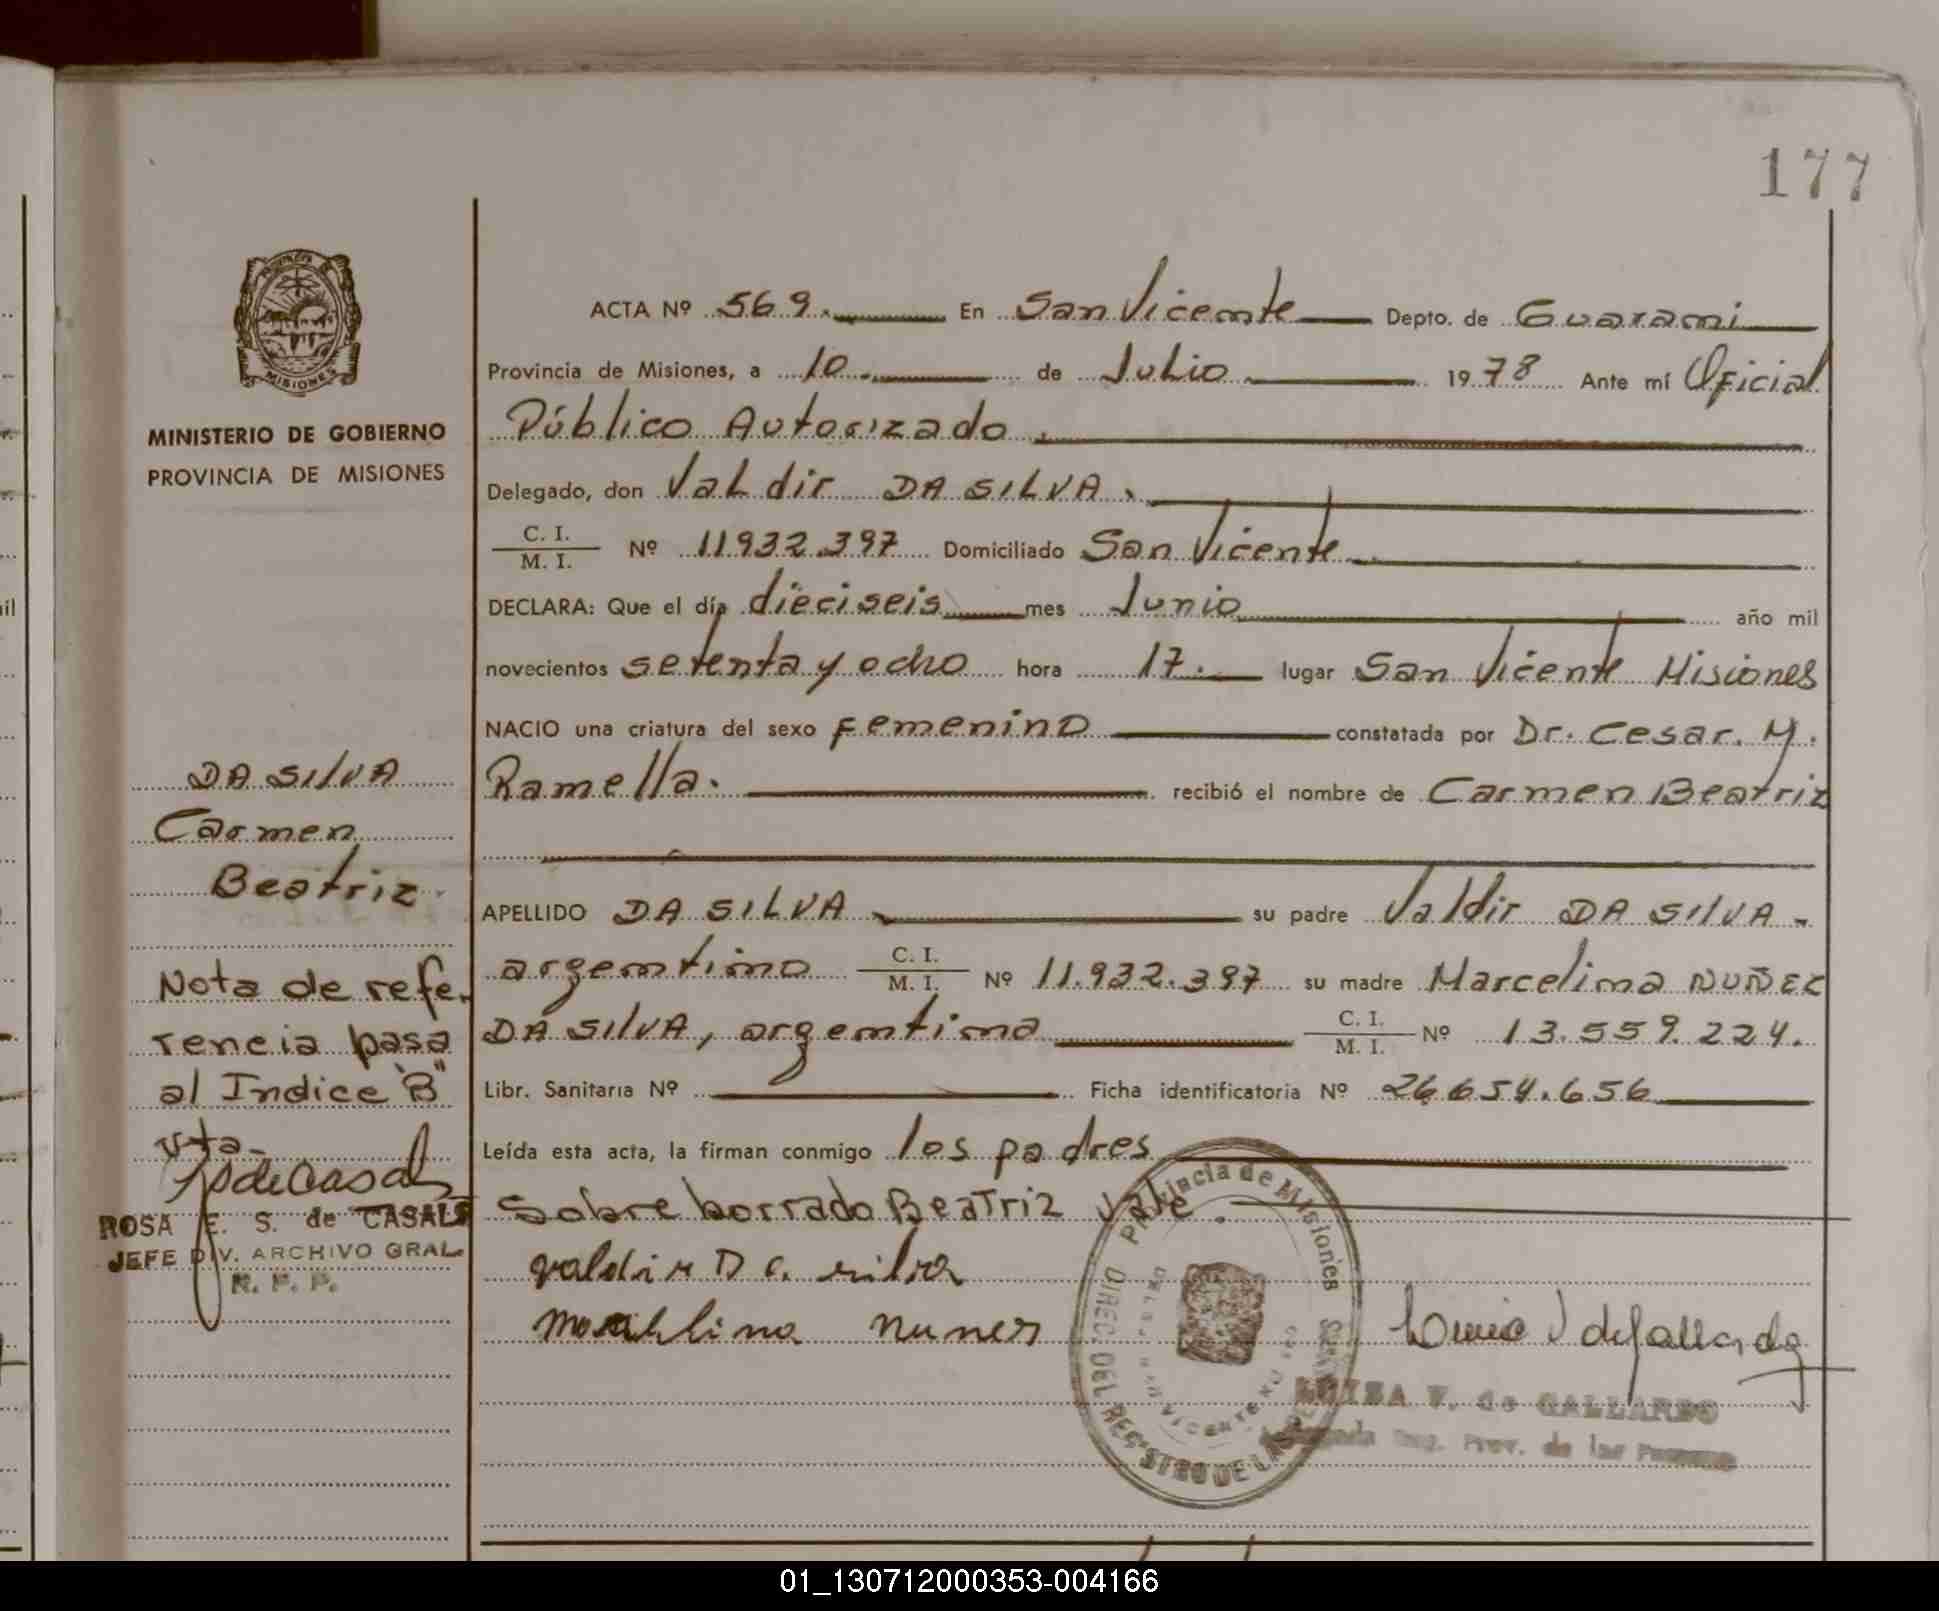 177
MINISTERIO DE GOBIERNO
PROVINCIA DE MISIONES
ACTA Nº 569. En San Vicente Depto. de Guarani
Provincia de Misiones, a 10 de Julio 1978 Ante mí Oficial
Público Autorizado.
Delegado, don Valdir DA SILVA.
C. I. / M. I. Nº 11932.397 Domiciliado San Vicente
DECLARA: Que el día dieciseis mes Junio año mil
novecientos setenta y ocho hora 17. lugar San Vicente Misiones
NACIO una criatura del sexo Femenino constatada por Dr. Cesar. M.
Ramella. recibió el nombre de Carmen Beatriz
APELLIDO DA SILVA su padre Valdir DA SILVA.
argentino C. I. / M. I. Nº 11.932.397 su madre Marcelina NUÑEZ
DA SILVA, argentina C. I. / M. I. Nº 13.559.224.
Libr. Sanitaria Nº Ficha identificatoria Nº 26.654.656
Leída esta acta, la firman conmigo los padres
Sobre borrado Beatriz Vale.
valdir Da silva
nunes
LUISA V. de GALLARDO
Provincia de Misiones
DIREC. DEL REGISTRO DE LAS
DA SILVA
Carmen
Beatriz.
Nota de refe-
rencia pasa
al Indice "B"
vta-
ROSA E. S. de CASALS
JEFE DIV. ARCHIVO GRAL.
R. P. P.
01_130712000353-004166